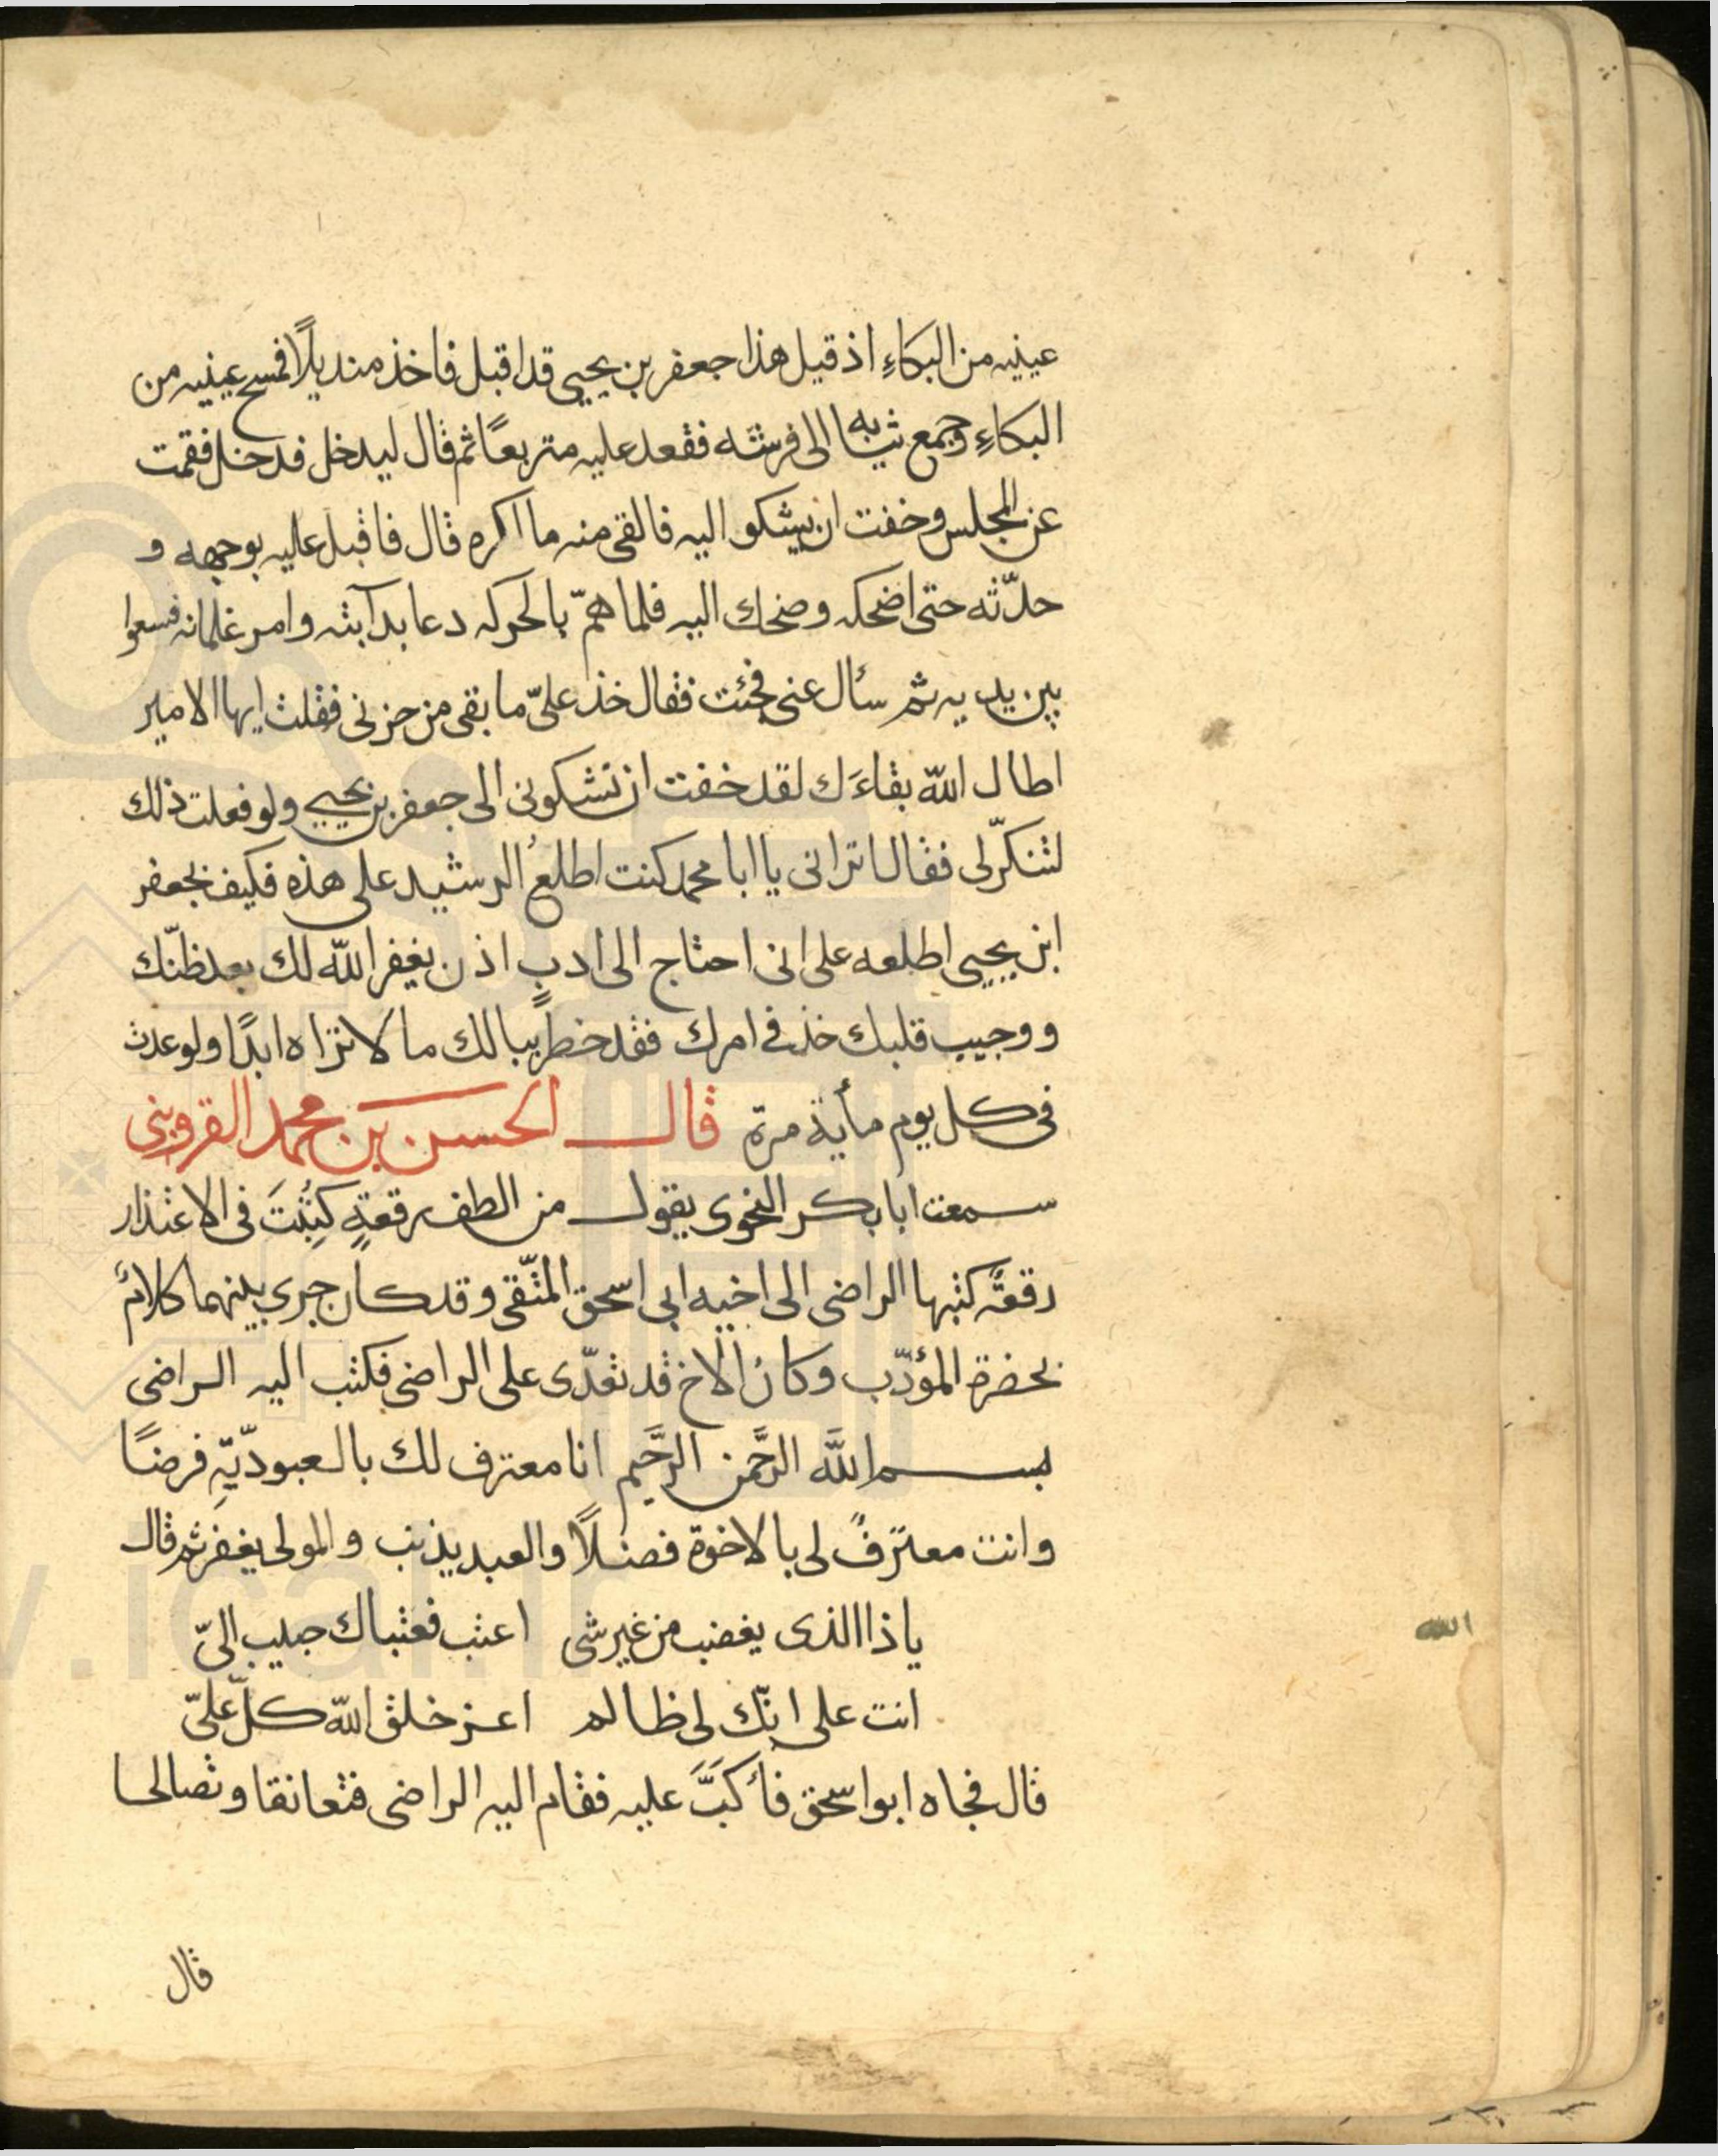 عينيه من البكاءِ اذ قيل هذا جعفر بن يحيى قد اقبل فاخذ منديلاً فمسح عينيه من
البكاءِ وجمع ثيابه الى فرشه فقعد عليه متربعاً ثم قال ليدخل فدخل فقمت
عن المجلس وخفت ان يشكو اليه فالقى منه ما اكره قال فاقبل عليه بوجهه و
حدّثه حتى اضحكه وضحك اليه فلما همّ بالحركه دعا بدآبته وامر غلمانه فسعوا
بين يديه ثم سأل عنى فجئت فقال خذ علىّ ما بقى من حزنى فقلت ايها الامير
اطال اللّه بقاءَك لقد خفت ان تشكونى الى جعفر بن يحيى ولو فعلت ذلك
لتنكرّلى فقال اترانى يا ابا محمد كنت اطلعُ الرشيد على هذه فكيف بجعفر
ابن يحيى اطلعه على انى احتاج الى ادبٍ اذن يغفر اللّه لك بعد ظنّك
ووجيب قلبك خذ فى امرك فقد خطر ببالك ما لا تراه ابدًا ولو عدت
فى كل يوم مأية مرة قال الحسن بن محمد القزوينى
سمعت ابا بكر النحوى يقول من الطف رقعةٍ كُتِبَت فى الاعتذار
رقعةً كتبها الراضى الى اخيه ابى اسحق المتّقى وقد كان جرى بينهما كلامٌ
بحضرة المؤدّب وكان الاخ قد تعدّى على الراضى فكتب اليه الراضى
بسم اللَّه الرحَّمن الرحَّيم انا معترف لك بالعبوديّةِ فرضًا
وانت معترفٌ لى بالاخوة فضلاً والعبد يذنب والمولى يغفر ثم قال
يا ذا الذى يغضب من غير شى اعتب فعتباك حبيب الىّ
انت على انّك لى ظالم اعز خلق اللّه كلّ علىّ
قال فجاه ابو اسحق فأكبَّ عليه فقام اليه الراضى فتعانقا وتصالحا
قال
الله